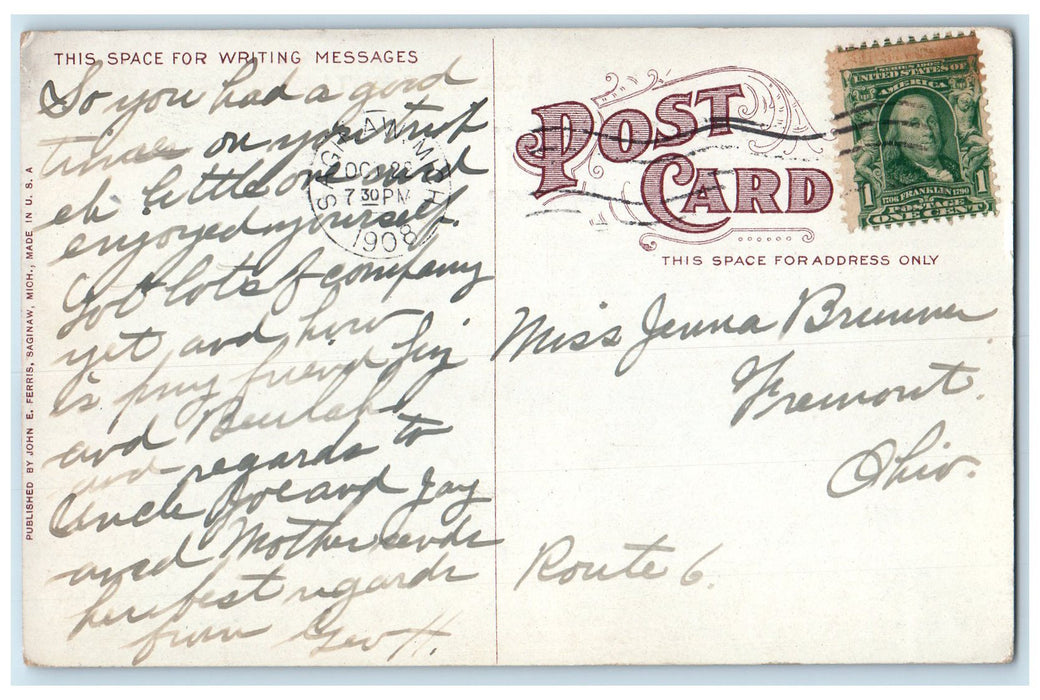 THIS SPACE FOR WRITING MESSAGES
So you had a good
time on you trip
eh little one and
enjoyed yourself.
Got lots of company
yet and how
is my friend
and Beulah
and regards to
Uncle Joe and Jay
and Mother sends
her best regards
from Geo H.
SAGINAW, MICH
OCT
7 30 PM
1908
PUBLISHED BY JOHN E. FERRIS, SAGINAW, MICH., MADE IN U. S. A
POST
CARD
SERIES 1902
UNITED STATES OF
AMERICA
1706 FRANKLIN 1790
1 1
POSTAGE
ONE CENT
THIS SPACE FOR ADDRESS ONLY
Miss Jenna Brunner
Fremont.
Ohio.
Route 6.